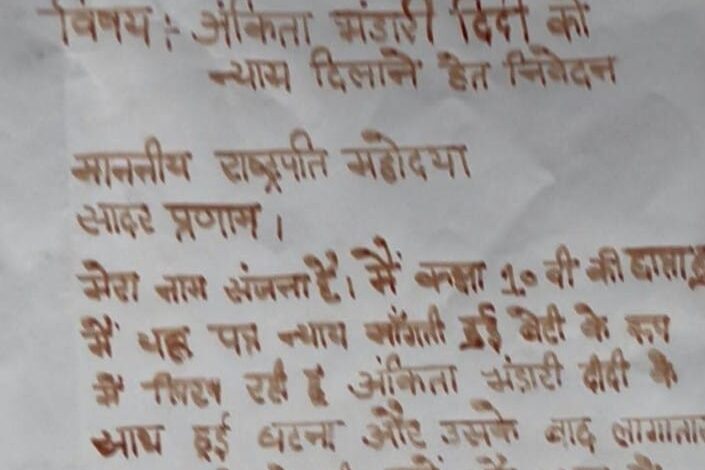 विषय : अंकिता भंडारी दिदी को
न्याय दिलाने हेत निवेदन
माननीय राष्ट्रपति महोदया
सादर प्रणाम ।
मेरा नाम संजना है। मैं कक्षा 10 वी की छात्रा हूं
मैं यह पत्र न्याय माँगती हुई बेटी के रूप
में लिख रही हूं अंकिता भंडारी दीदी के
साथ हुई घटना और उसके बाद लागातार